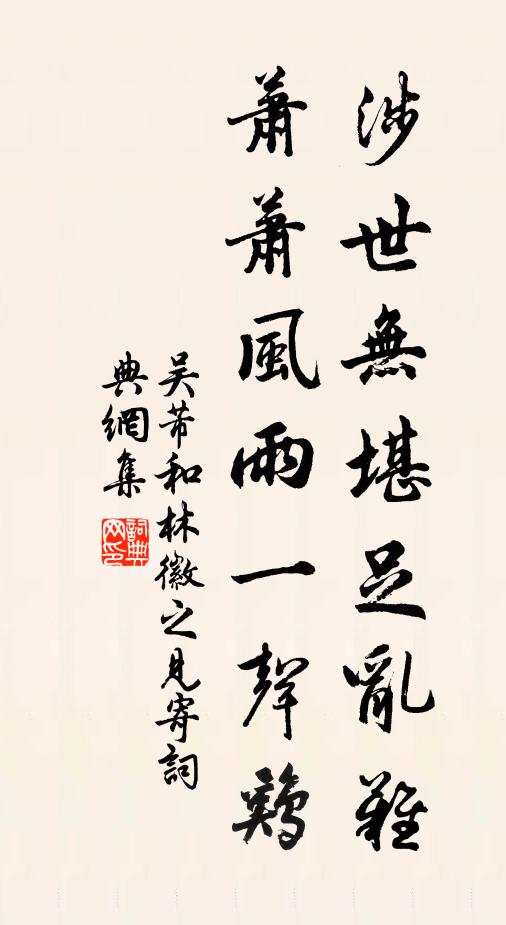 涉世無堪足亂離
蕭蕭風雨一聲鷄
吴芾和林徽之見寄詞
典網集
詞典網印